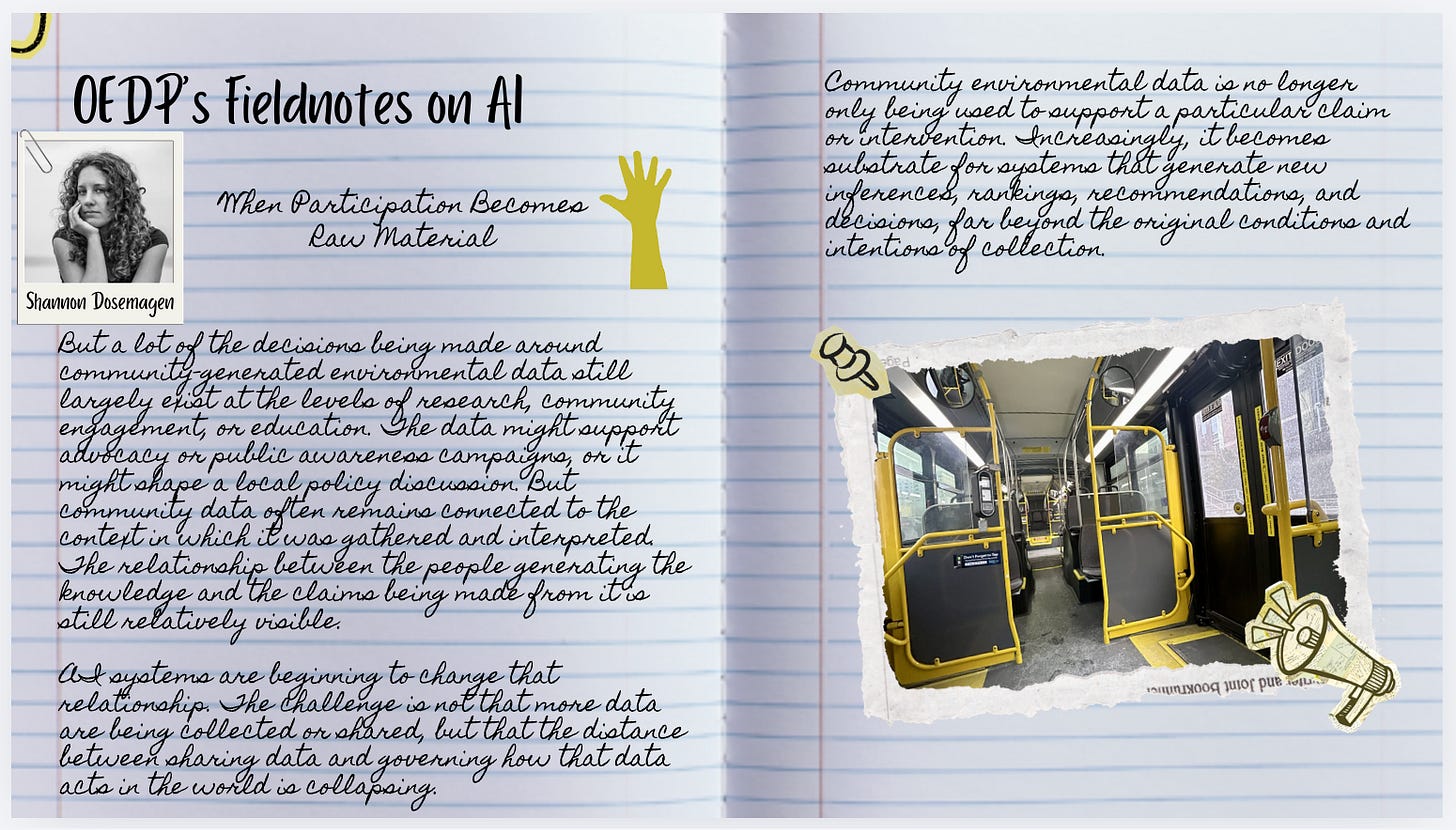 OEDP's Fieldnotes on AI
Shannon Dosemagen
When Participation Becomes
Raw Material
But a lot of the decisions being made around
community-generated environmental data still
largely exist at the levels of research, community
engagement, or education. The data might support
advocacy or public awareness campaigns, or it
might shape a local policy discussion. But
community data often remains connected to the
context in which it was gathered and interpreted.
The relationship between the people generating the
knowledge and the claims being made from it is
still relatively visible.
AI systems are beginning to change that
relationship. The challenge is not that more data
are being collected or shared, but that the distance
between sharing data and governing how that data
acts in the world is collapsing.
Community environmental data is no longer
only being used to support a particular claim
or intervention. Increasingly, it becomes
substrate for systems that generate new
inferences, rankings, recommendations, and
decisions, far beyond the original conditions and
intentions of collection.
EXIT DOOR
and Joint Bookrunner